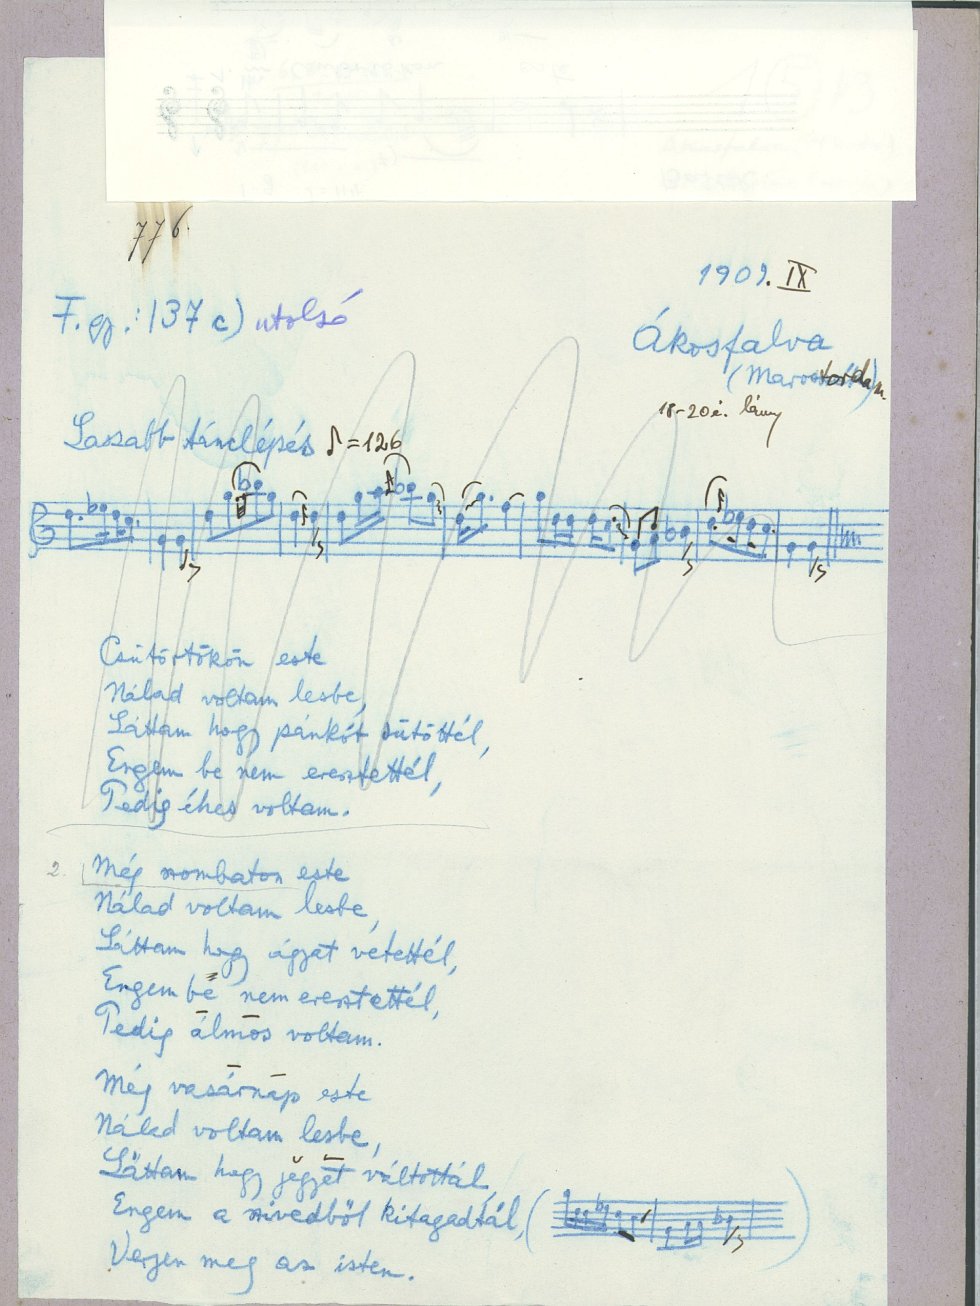 776.
1909. IX
F. gy.: 137 c) utolsó
Ákosfalva
18-20 é. lány
Lassabb tánclépés ♪=126
Csütörtökön este
Nálad voltam lesbe,
Láttam hogy pánkót sütöttél,
Engem be nem eresztettél,
Pedig éhes voltam.
2. Még szombaton este
Nálad voltam lesbe,
Láttam hogy ágyat vetettél,
Engem be nem eresztettél,
Pedig álmos voltam.
Még vasárnap este
Nálad voltam lesbe,
Láttam hogy jegyet váltottál,
Engem a szivedből kitagadtál,
Verjen meg az isten.